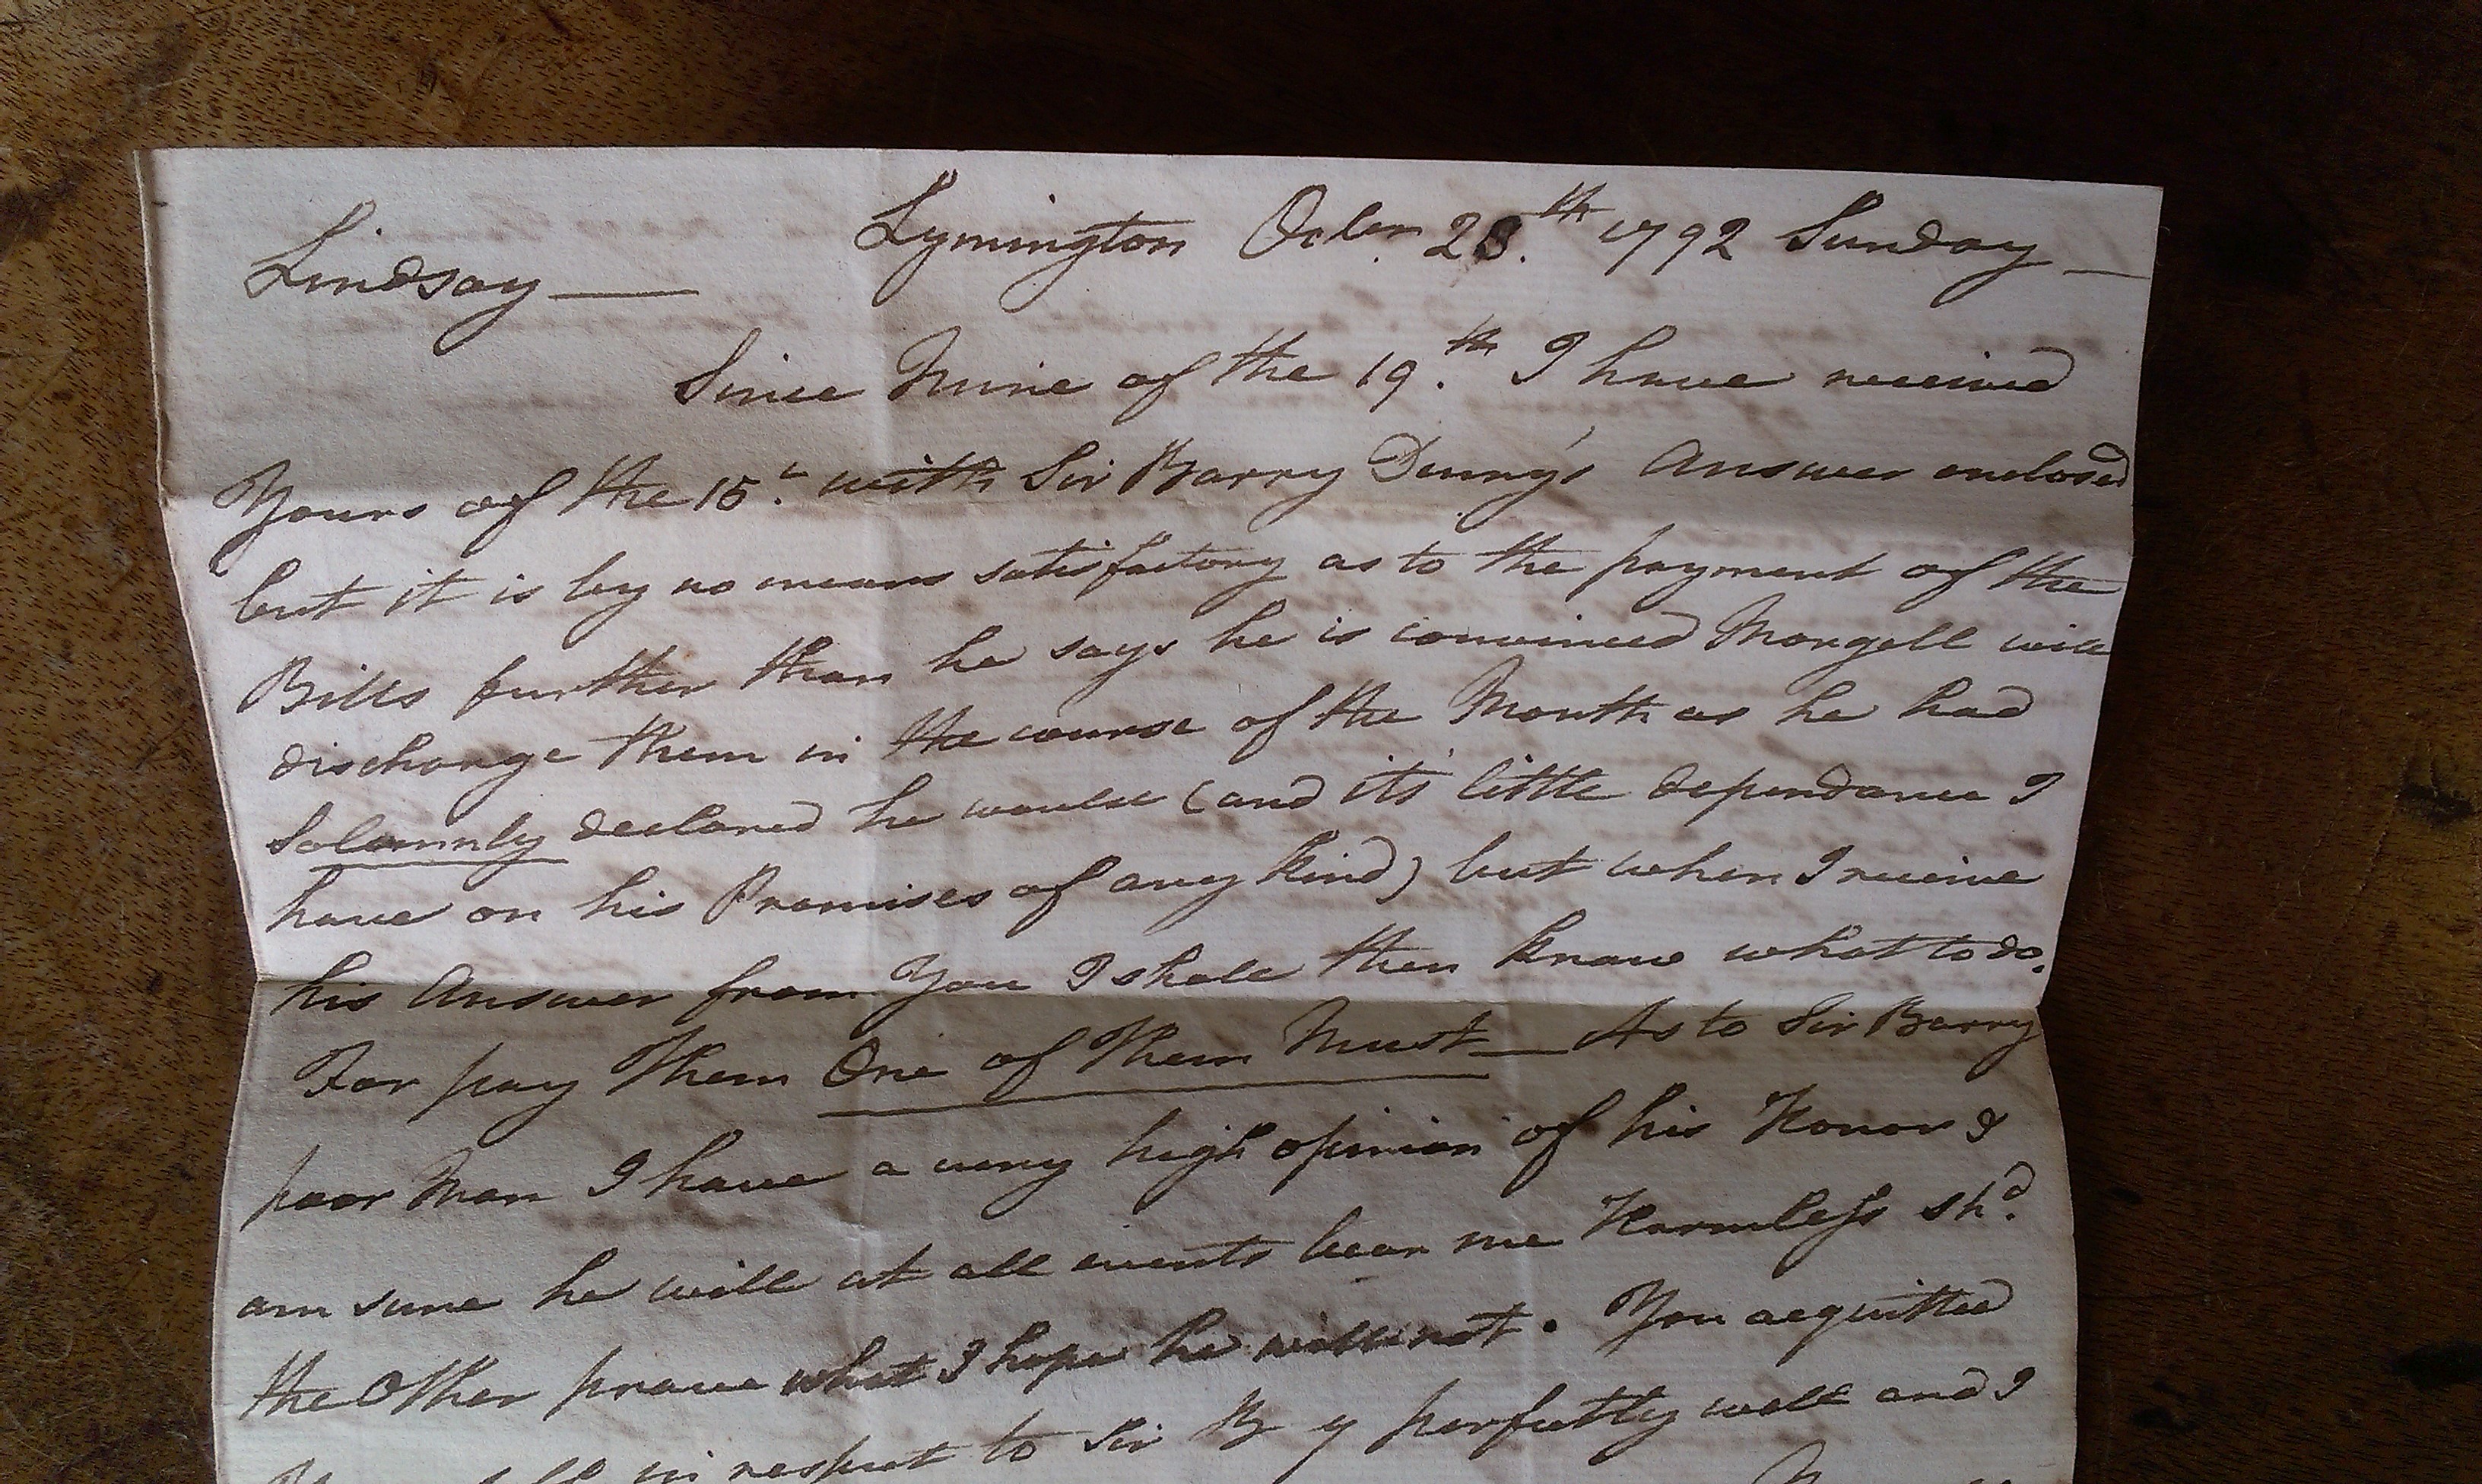 Lymington Octbr. 28.th 1792 Sunday —
Lindsay —
Since Mine of the 19.th I have received
Yours of the 15.th with Sir Barry Denny's Answer enclosed
but it is by no means satisfactory as to the payment of the
Bills further than he says he is convinced Morgell will
discharge them in the course of the Month as he had
Solemnly declared he would (and its' little dependance I
have on his Promises of any kind) but when I receive
his Answer from You I shall then know what to do.
For pay them One of them Must — As to Sir Barry
poor Man I have a very high opinion of his Honor &
am sure he will at all events bear me Harmless shd.
the Other prove what I hope he will not. You acquitted
in respect to Sir B y perfectly well and I